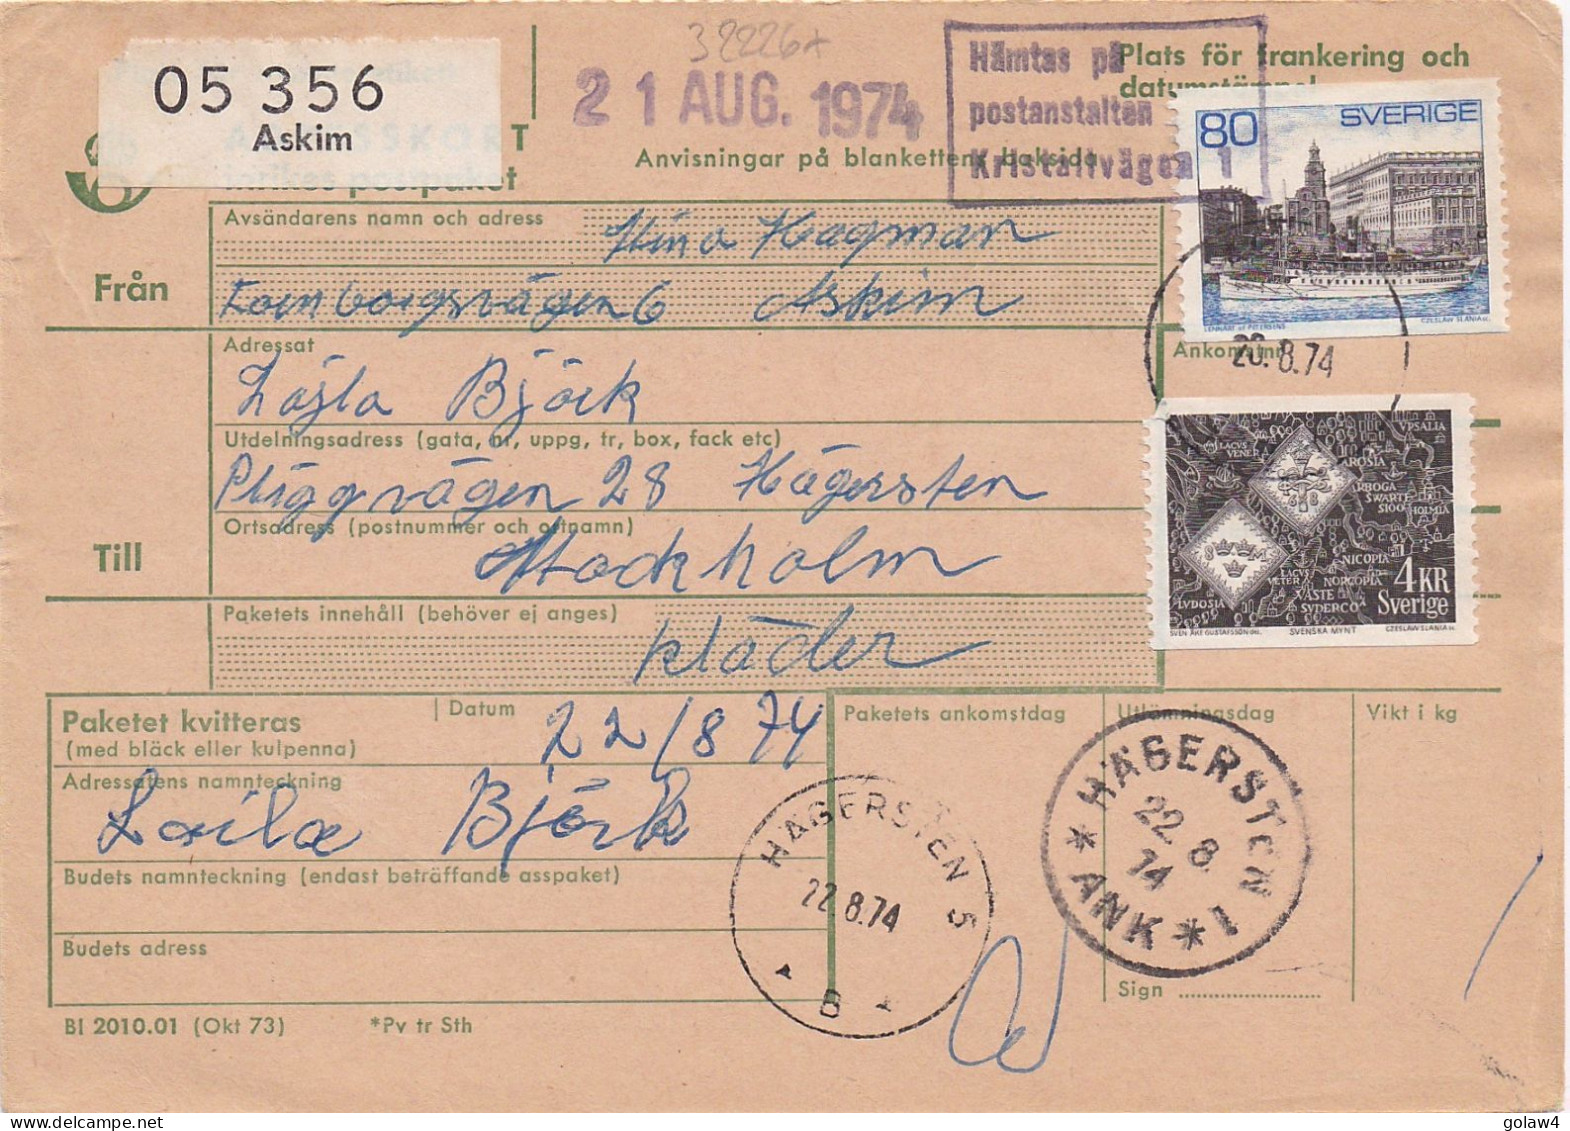 32226
05 356
Askim
21 AUG. 1974
Hämtas på
postanstalten
Kristallvägen 1
Plats för frankering och
datumstämpel
ADRESSKORT
inrikes postpaket
Anvisningar på blankettens baksida
80 SVERIGE
LENNART AF PETERSENS CZESLAW SLANIA SC.
20.8.74
Från
Avsändarens namn och adress
Stina Hagman
Kornborgsvägen 6 Askim
Adressat
Lajla Björk
Ankomstnr
Utdelningsadress (gata, nr, uppg, tr, box, fack etc)
Pliggvägen 28 Hägersten
Till
Ortsadress (postnummer och ortnamn)
Stockholm
Paketets innehåll (behöver ej anges)
kläder
LACVS VENER
VPSALIA
AROSIA
ARBOGA
SWARTE
SIOO
HOLMIA
NICOPIA
LACVS VETER
NORCOPIA
LVDOSIA
WASTE
SVDERCO
4 KR
Sverige
SVEN ÅKE GUSTAFSSON DEL. SVENSKA MYNT CZESLAW SLANIA SC.
Paketet kvitteras
(med bläck eller kulpenna)
Datum
22/8 74
Adressatens namnteckning
Laila Björk
Paketets ankomstdag
Utlämningsdag
Vikt i kg
HÄGERSTEN 5
22.8.74
B
HÄGERSTEN 1
22 8
74
* ANK *
Budets namnteckning (endast beträffande asspaket)
Budets adress
Sign
Bl 2010.01 (Okt 73) *Pv tr Sth
golaw4